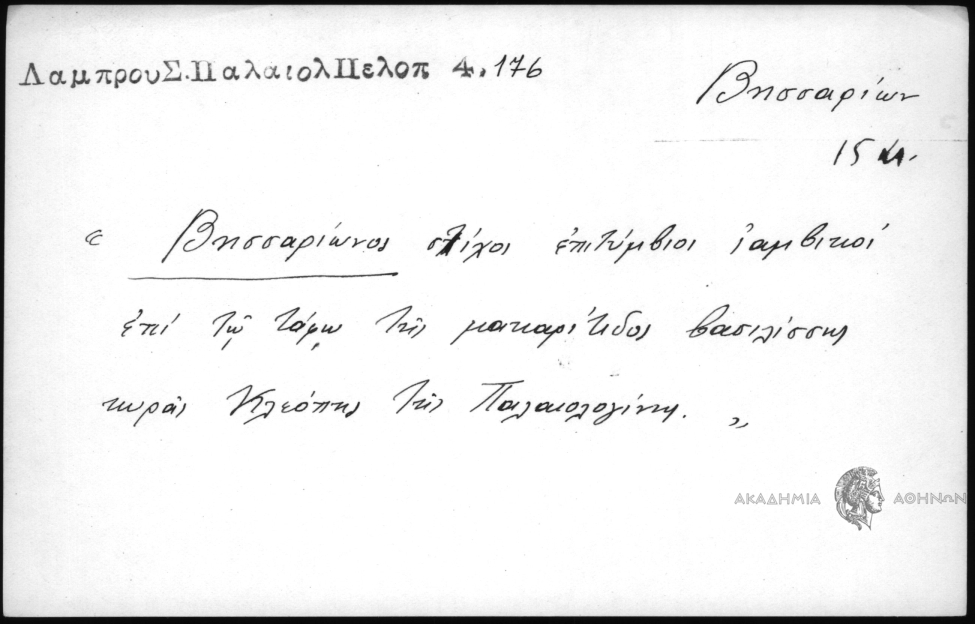 ΛαμπρουΣ.ΠαλαιολΠελοπ 4.176
Βησσαρίων
15 αι.
« Βησσαρίωνος στίχοι ἐπιτύμβιοι ἰαμβικοί
ἐπί τῷ τάφῳ τῆς μακαρίτιδος βασιλίσσης
κυρᾶς Κλεόπης τῆς Παλαιολογίνης. »
ΑΚΑΔΗΜΙΑ ΑΘΗΝΩΝ